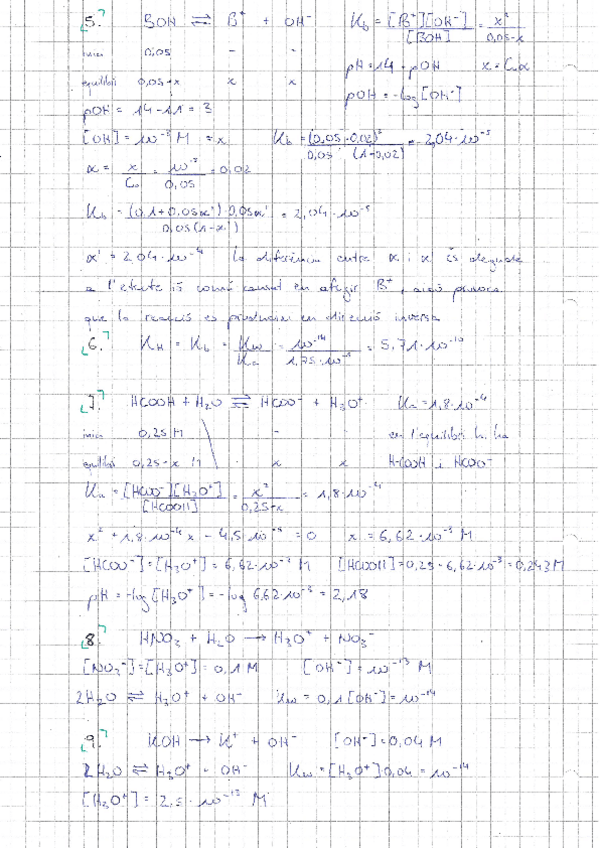 5. BOH ⇌ B⁺ + OH⁻ K_b = [B⁺][OH⁻]/[BOH] = x²/0,05-x
inici 0,05 - -
equilibri 0,05-x x x pH = 14 - pOH x = C₀α
pOH = 14-11 = 3 pOH = -log[OH⁻]
[OH] = 10⁻³ M = x K_b = (0,05·0,02)²/0,05·(1-0,02) = 2,04·10⁻⁵
α = x/C₀ = 10⁻³/0,05 = 0,02
K_b = (0,1+0,05α')·0,05α'/0,05(1-α') = 2,04·10⁻⁵
α' = 2,04·10⁻⁴ la diferència entre α i α' és deguda
a l'efecte ió comú causat en afegir B⁺, això provoca
que la reacció es produeixi en direcció inversa
6. K_H = K_b = K_w/K_a = 10⁻¹⁴/1,75·10⁻⁵ = 5,71·10⁻¹⁰
7. HCOOH + H₂O ⇌ HCOO⁻ + H₃O⁺ K_a = 1,8·10⁻⁴
inici 0,25 M - en l'equilibri hi ha
equilibri 0,25-x M - x x HCOOH i HCOO⁻
K_a = [HCOO⁻][H₃O⁺]/[HCOOH] = x²/0,25-x = 1,8·10⁻⁴
x² + 1,8·10⁻⁴x - 4,5·10⁻⁵ = 0 x = 6,62·10⁻³ M
[HCOO⁻] = [H₃O⁺] = 6,62·10⁻³ M [HCOOH] = 0,25 - 6,62·10⁻³ = 0,243 M
pH = -log[H₃O⁺] = -log 6,62·10⁻³ = 2,18
8. HNO₃ + H₂O → H₃O⁺ + NO₃⁻
[NO₃⁻] = [H₃O⁺] = 0,1 M [OH⁻] = 10⁻¹³ M
2H₂O ⇌ H₃O⁺ + OH⁻ K_w = 0,1[OH⁻] = 10⁻¹⁴
9. KOH → K⁺ + OH⁻ [OH⁻] = 0,04 M
2H₂O ⇌ H₃O⁺ + OH⁻ K_w = [H₃O⁺]0,04 = 10⁻¹⁴
[H₃O⁺] = 2,5·10⁻¹³ M